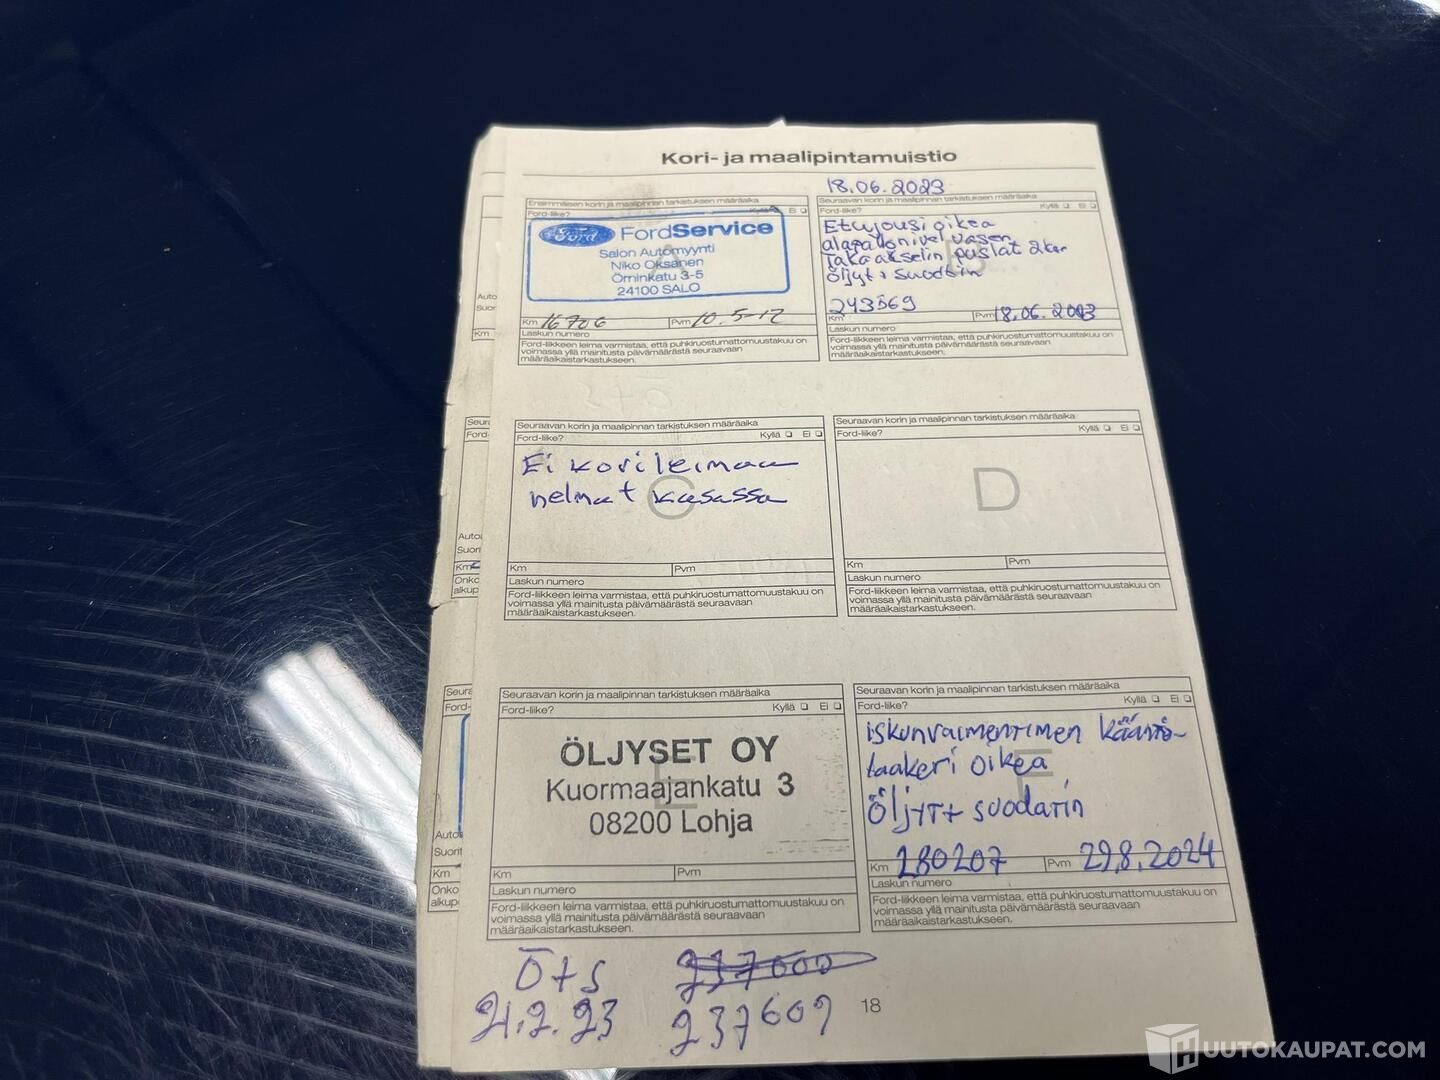 Kori- ja maalipintamuistio
18.06.2023
Ensimmäisen korin ja maalipinnan tarkistuksen määräaika
Ford-liike?
Kyllä Ei
Ford
FordService
Salon Automyynti
Niko Oksanen
Örninkatu 3-5
24100 SALO
Km 16706
Pvm 10.5-12
Laskun numero
Ford-liikkeen leima varmistaa, että puhkiruostumattomuustakuu on
voimassa yllä mainitusta päivämäärästä seuraavaan
määräaikaistarkastukseen.
Seuraavan korin ja maalipinnan tarkistuksen määräaika
Ford-liike?
Kyllä Ei
Etujousi oikea
alapallonivel vasen
Taka akselin puslat 2kpl
öljyt + suodatin
243569
Km
Pvm 18.06.2023
Laskun numero
Ford-liikkeen leima varmistaa, että puhkiruostumattomuustakuu on
voimassa yllä mainitusta päivämäärästä seuraavaan
määräaikaistarkastukseen.
Seuraavan korin ja maalipinnan tarkistuksen määräaika
Ford-liike?
Kyllä Ei
Ei korileimaa
helmat kasassa
C
Km
Pvm
Laskun numero
Ford-liikkeen leima varmistaa, että puhkiruostumattomuustakuu on
voimassa yllä mainitusta päivämäärästä seuraavaan
määräaikaistarkastukseen.
Seuraavan korin ja maalipinnan tarkistuksen määräaika
Ford-liike?
Kyllä Ei
D
Km
Pvm
Laskun numero
Ford-liikkeen leima varmistaa, että puhkiruostumattomuustakuu on
voimassa yllä mainitusta päivämäärästä seuraavaan
määräaikaistarkastukseen.
Seuraavan korin ja maalipinnan tarkistuksen määräaika
Ford-liike?
Kyllä Ei
ÖLJYSET OY
Kuormaajankatu 3
08200 Lohja
E
Km
Pvm
Laskun numero
Ford-liikkeen leima varmistaa, että puhkiruostumattomuustakuu on
voimassa yllä mainitusta päivämäärästä seuraavaan
määräaikaistarkastukseen.
Seuraavan korin ja maalipinnan tarkistuksen määräaika
Ford-liike?
Kyllä Ei
iskunvaimentimen kääntö-
laakeri oikea
F
Öljyt + suodatin
Km 280207
Pvm 29.8.2024
Laskun numero
Ford-liikkeen leima varmistaa, että puhkiruostumattomuustakuu on
voimassa yllä mainitusta päivämäärästä seuraavaan
määräaikaistarkastukseen.
Ö+S
237000
21.2.23
237609
18
HUUTOKAUPAT.COM